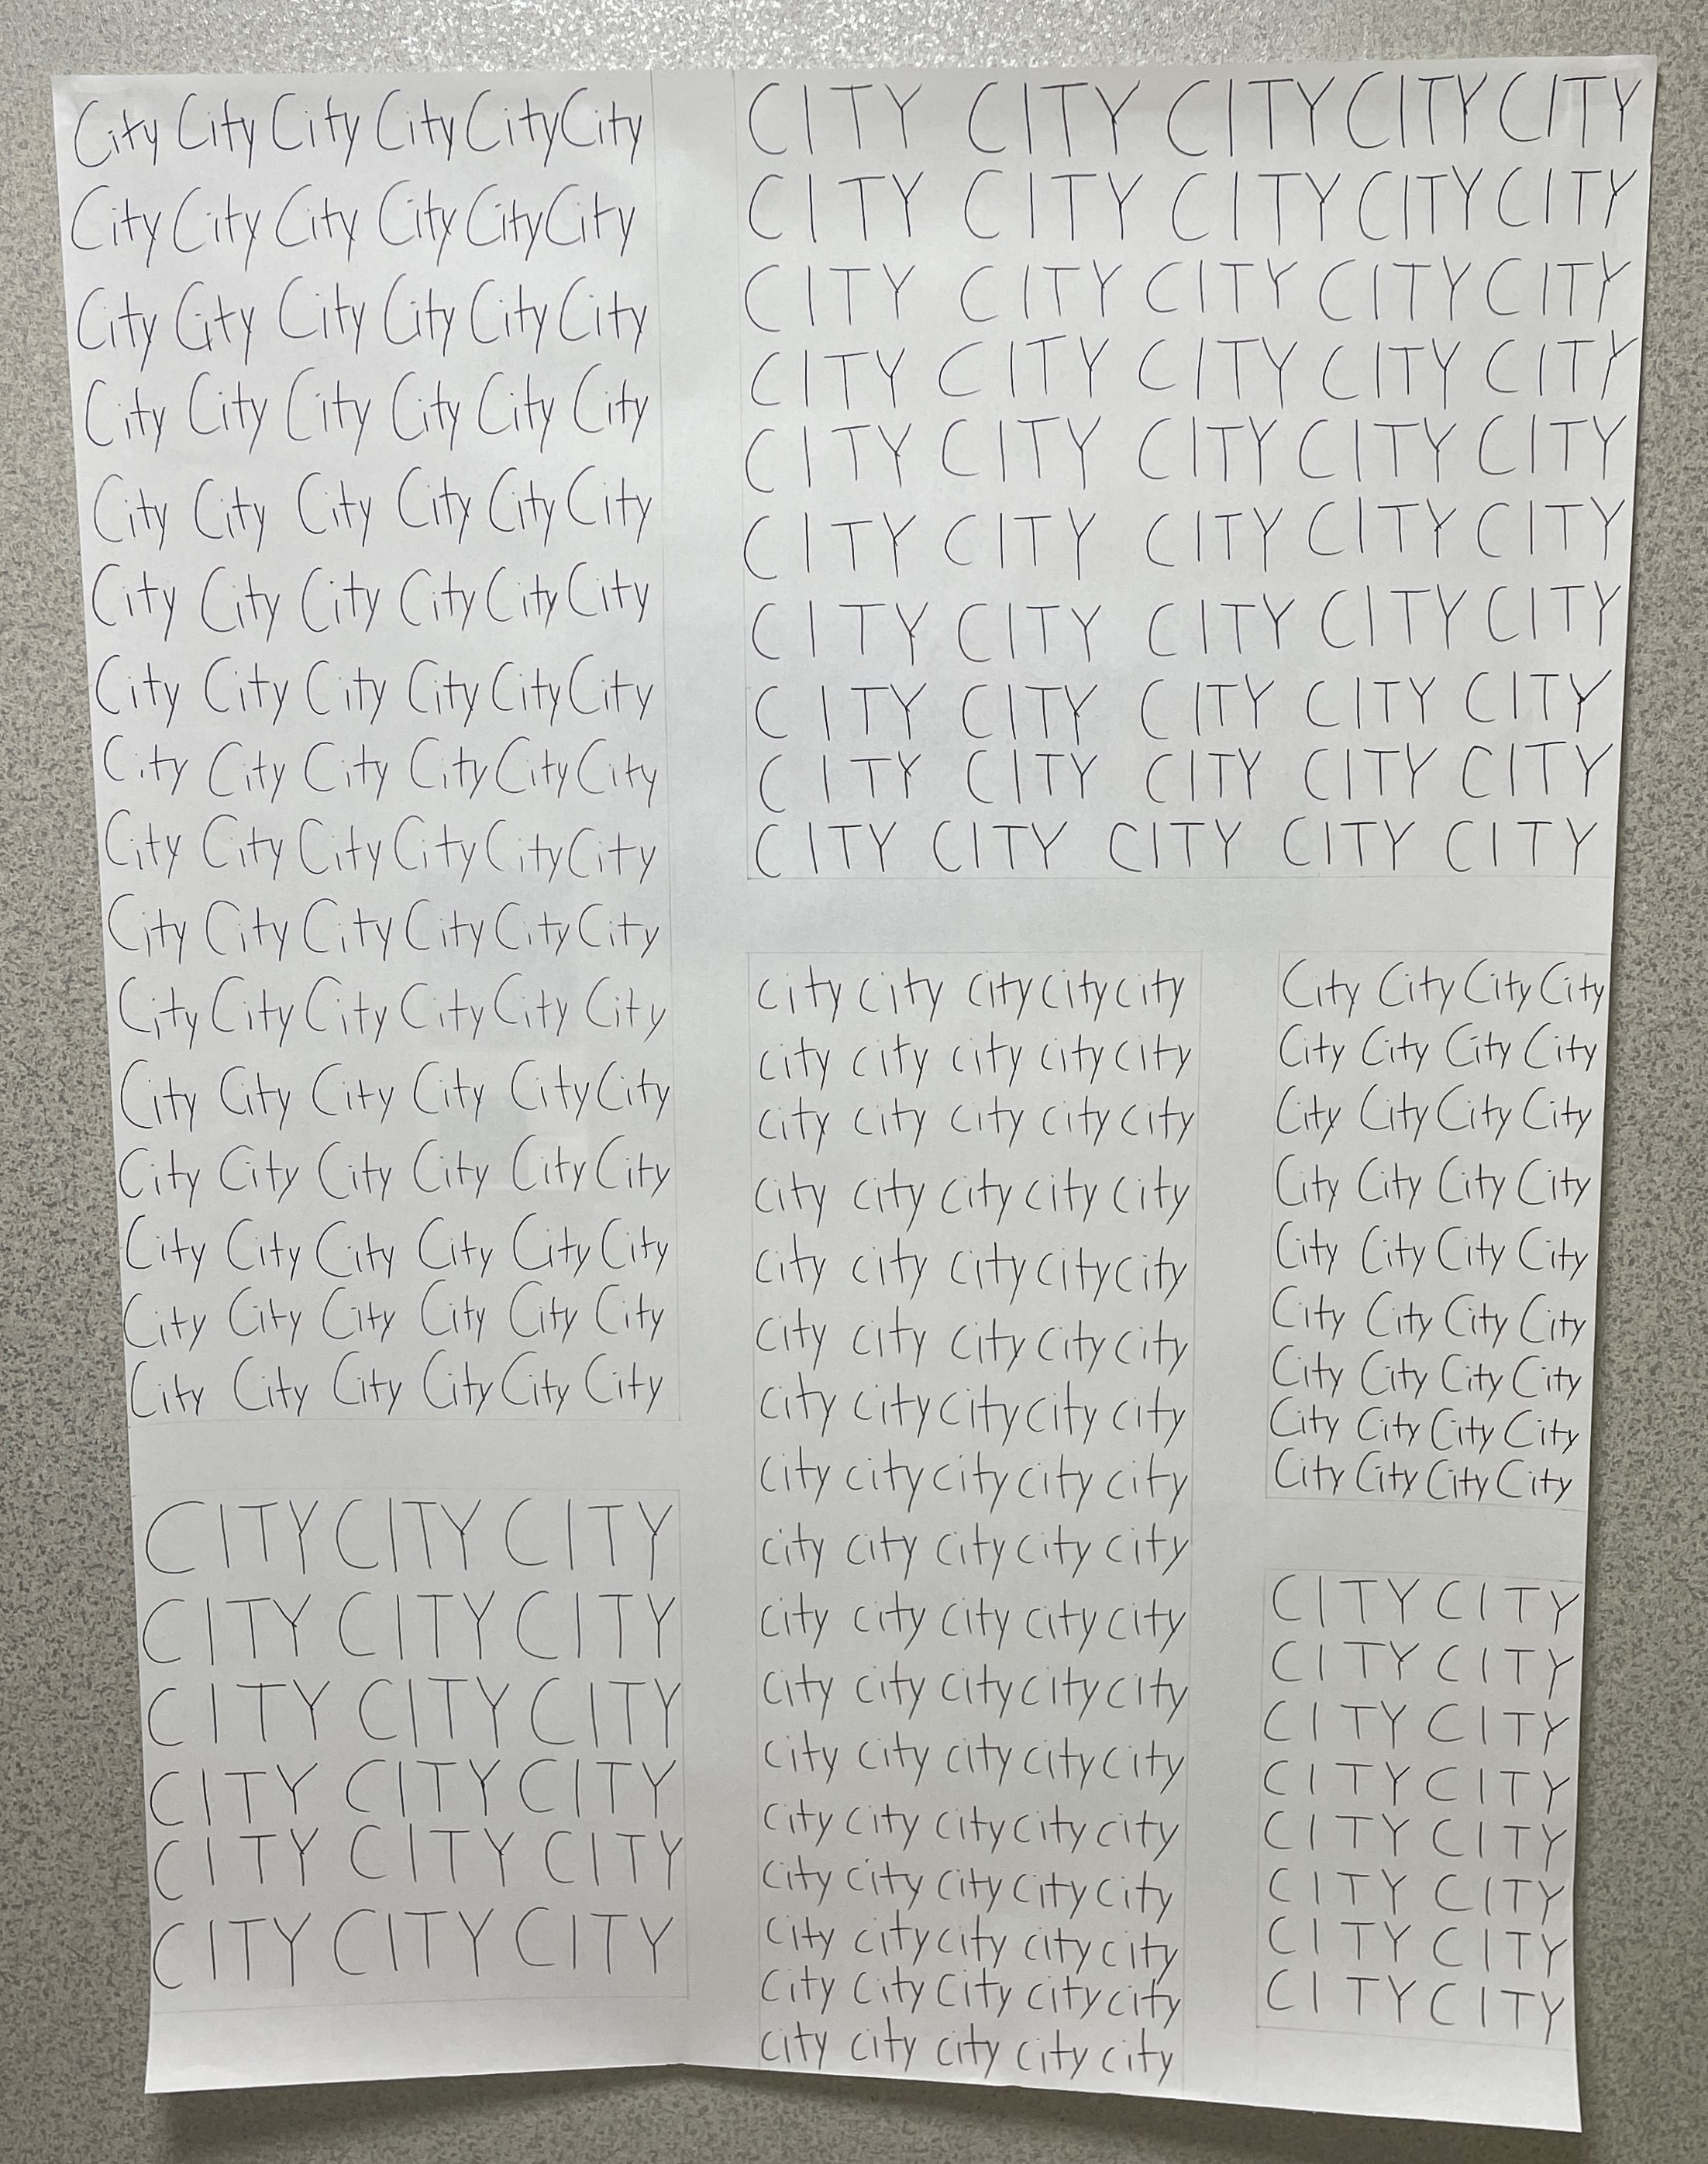 City City City City City City
City City City City City City
City City City City City City
City City City City City City
City City City City City City
City City City City City City
City City City City City City
City City City City City City
City City City City City City
City City City City City City
City City City City City City
City City City City City City
City City City City City City
City City City City City City
City City City City City City
City City City City City City
CITY CITY CITY
CITY CITY CITY
CITY CITY CITY
CITY CITY CITY
CITY CITY CITY
CITY CITY CITY
CITY CITY CITY CITY CITY
CITY CITY CITY CITY CITY
CITY CITY CITY CITY CITY
CITY CITY CITY CITY CITY
CITY CITY CITY CITY CITY
CITY CITY CITY CITY CITY
CITY CITY CITY CITY CITY
CITY CITY CITY CITY CITY
CITY CITY CITY CITY CITY
CITY CITY CITY CITY CITY
city city city city city
city city city city city
city city city city city
city city city city city
city city city city city
city city city city city
city city city city city
city city city city city
city city city city city
city city city city city
city city city city city
city city city city city
city city city city city
city city city city city
city city city city city
city city city city city
city city city city city
City City City City
City City City City
City City City City
City City City City
City City City City
City City City City
City City City City
City City City City
City City City City
CITY CITY
CITY CITY
CITY CITY
CITY CITY
CITY CITY
CITY CITY
CITY CITY
CITY CITY